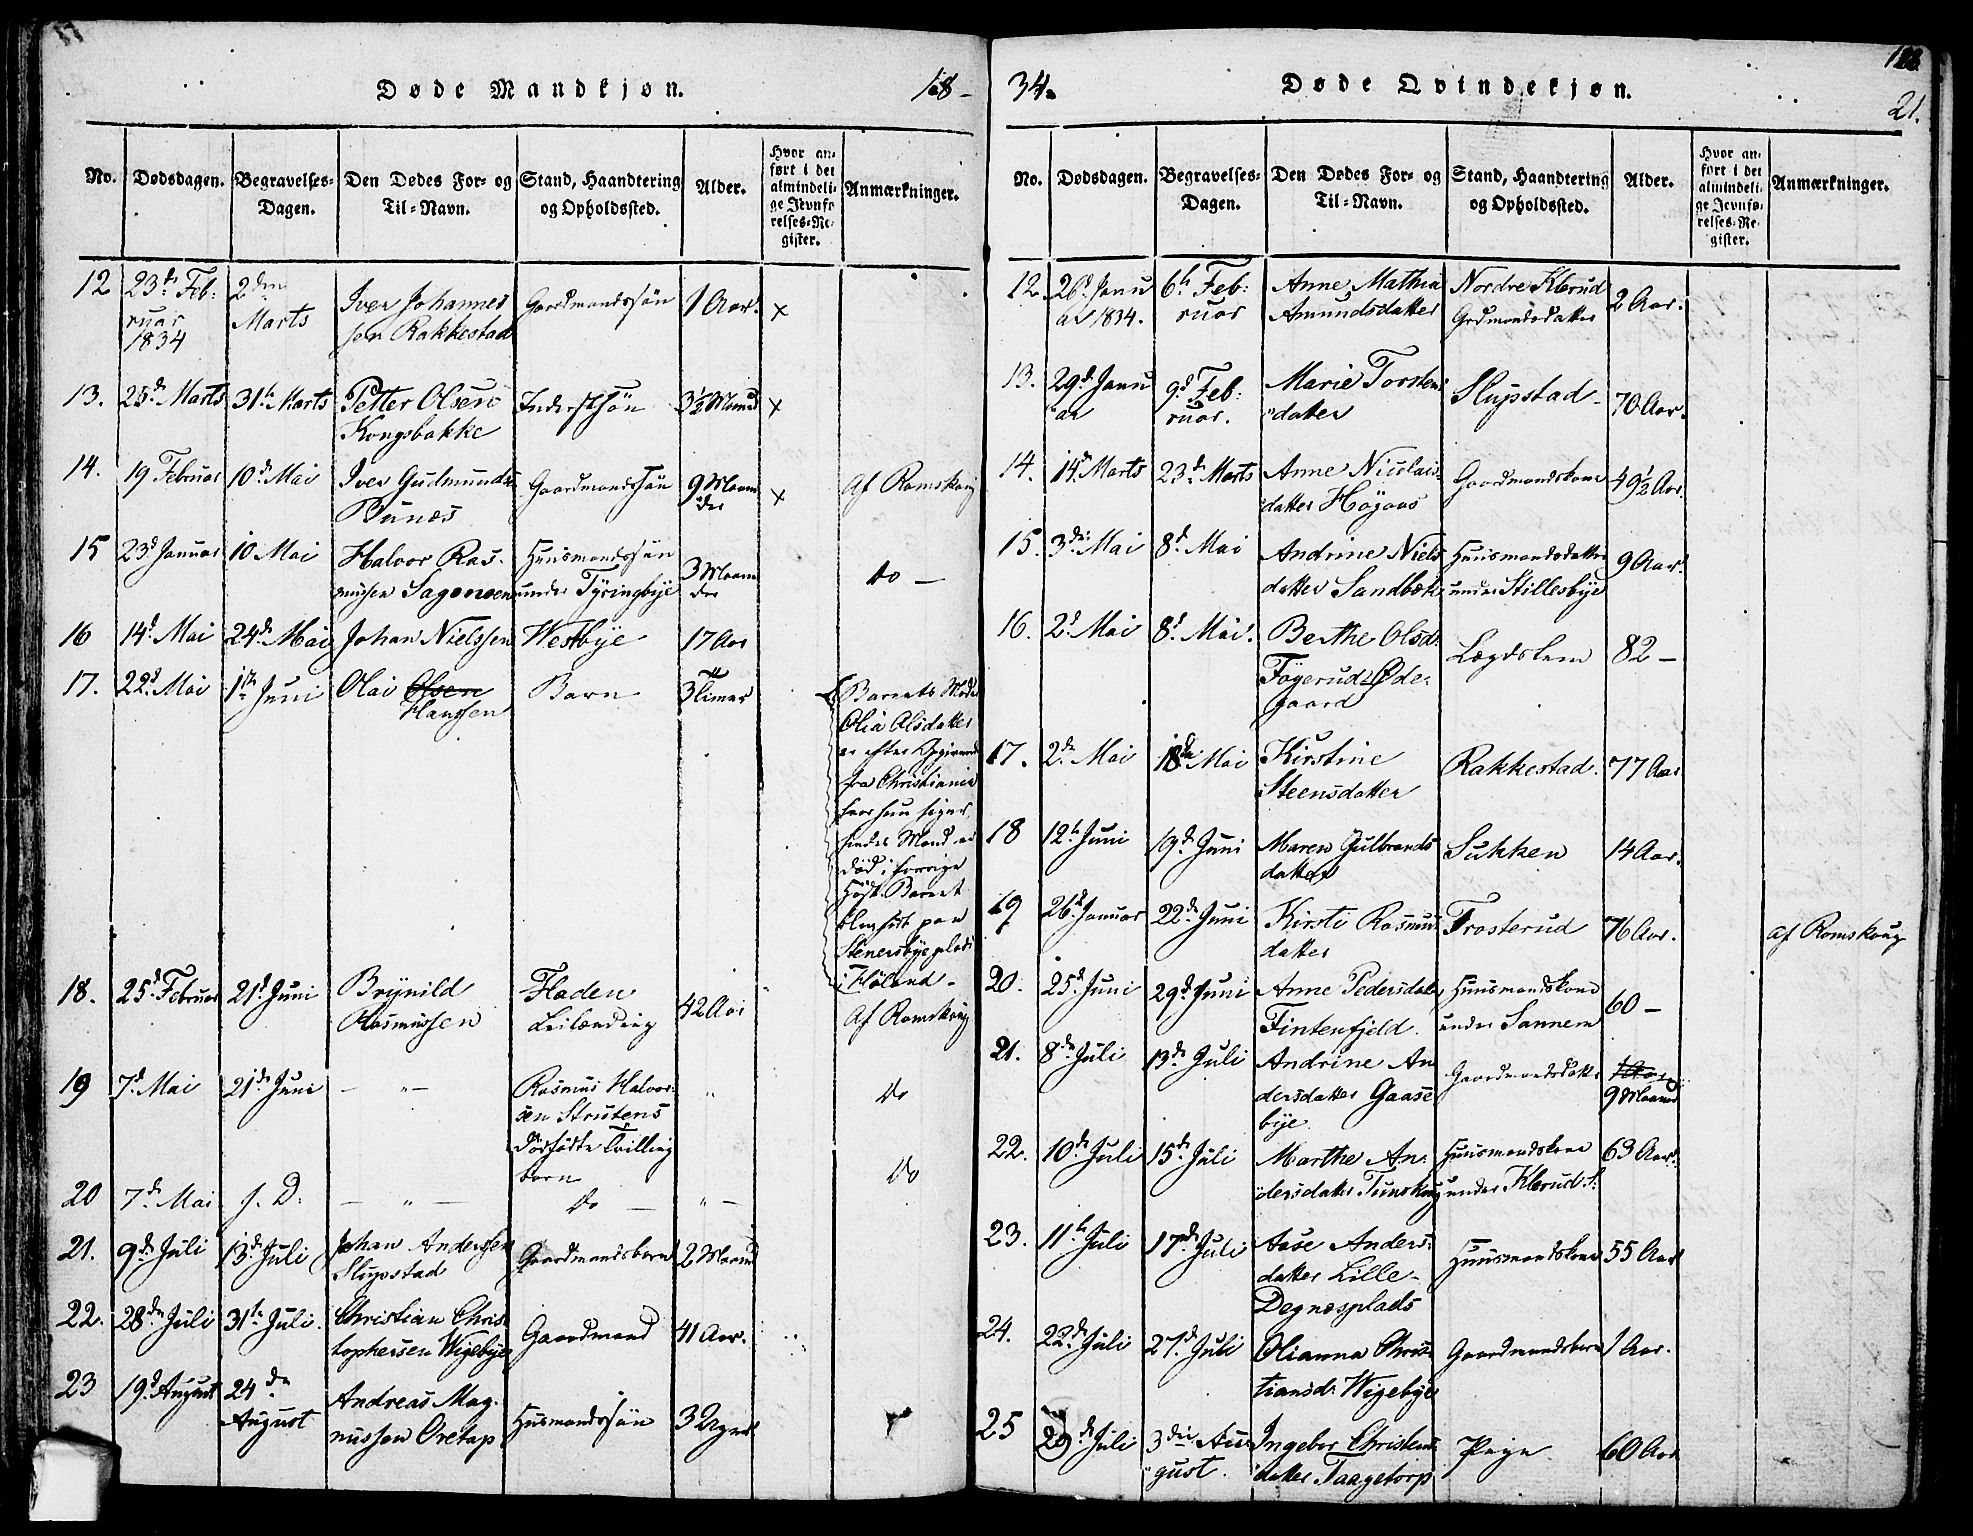 Døde Mandkjøn.
18-
No.
Dødsdagen.
Begravelses-
Dagen.
Den Dødes For- og
Til-Navn.
Stand, Haandtering
og Opholdssted.
Alder.
Hvor an-
ført i det
almindeli-
ge Jevnfø-
relses-Re-
gister.
Anmærkninger.
12
23de Feb:
ruar
1834
2den
Marts
Iver Johannes
sen Rakkestad
Gaardmandssøn
1 Aar.
x
13.
25de Marts
31te Marts
Petter Olsen
Kongsbakke
Inderstsøn
3½ Maaned
x
14.
19 Februar
10de Mai
Iver Gudmunds
Bunæs
Gaardmandssøn
9 Maane
der
x
Af Romskoug
15
23d Januar
10 Mai
Halvor Ras-
mussen Sagenæen
Huusmandssøn
under Tyringbye
3 Maane
der
do -
16
14d Mai
24de Mai
Johan Nielssen
Westbye
17 Aar
17.
22d Mai
1ste Juni
Olai Olsen
Hanssen
Barn
3 Timer
Barnets Moder
Olia Olsdatter
er efter Opgivende
fra Christiania
hvor hun siger
hendes Mand er
død i forrige
Høst. Barnet
blev født paa
Stenersbye plads
i Høland -
18.
25d Februar
21d Juni
Brynild
Rasmussen
Floden
Leilænding
42 Aar
Af Romskoug
19
7d Mai
21de Juni
- " -
Rasmus Halvor-
sen Strutens
dødfødte Tvilling
børn
"
Do
20
7de Mai
s. D:
- " -
Do -
" -
Do
21.
9de Juli
13de Juli
Johan Anderssen
Slupstad
Gaardmandsbarn
2 Maaned
22.
28de Juli
31te Juli.
Christian Chris-
tophersen Wigebye
Gaardmand
41 Aar.
23
19d August
24de
August
Andreas Mag-
nussen Oretap
Husmandssøn
3 Uger
34.
Døde Qvindekjøn.
21.
No.
Dødsdagen.
Begravelses-
Dagen.
Den Dødes For- og
Til-Navn.
Stand, Haandtering
og Opholdssted.
Alder.
Hvor an-
ført i det
almindeli-
ge Jevnfø-
relses-Re-
gister.
Anmærkninger.
12.
26d Janu
ar 1834.
6te Feb:
ruar
Anne Mathia
Amundsdatter
Nordre Klerud
Grdmandsdatter
2 Aar.
13.
29d Janu
ar
9d Feb:
ruar.
Marie Torstens
datter
Slupstad -
70 Aar.
14.
14de Marts
23de Marts
Anne Nicolais-
datter Höyaas
Gaardmandskone
49½ Aar.
15.
3die Mai
8d. Mai
Andrine Niels
datter Sandbæk
Huusmandsdatter
under Stillesbye
9 Aar.
16.
2d Mai
8d. Mai.
Berthe Olsd:
Föyerud=Øde-
gaard
Lægdslem
82 -
17.
2de Mai
18de Mai
Kirstine
Steensdatter
Rakkestad.
77 Aar
18
12te Juni
19de Juni
Maren Gulbrands
datter
Sukken
14 Aar.
19
26d. Januar
22de Juni
Kirsti Rasmus
datter
Trosterud
76 Aar.
af Romskoug
20.
25d. Juni
29de Juni
Anne Pedersdat.
Fintenfjeld.
Huusmandskone
under Sannem
60 -
21.
8de Juli
13de Juli
Andrine An
dersdatter Gaase
bye
Gaardmandsdatter
9 Maaned
22.
10de Juli
15de Juli
Marthe An-
dersdatter Tunskoug
Huusmandskone
under Klerud S:
63 Aar.
23.
11te Juli
17de Juli
Aase Anders-
datter Lille-
Degnesplads
Huusmandskone
55 Aar
24.
22de Juli
27de Juli
Olianna Chris-
tiansd: Wigebye
Gaardmandsbarn
1 Aar.
25
29de Juli
3die Au-
gust.
Ingebor Christens
datter Taagetorp
Pige
60 Aar